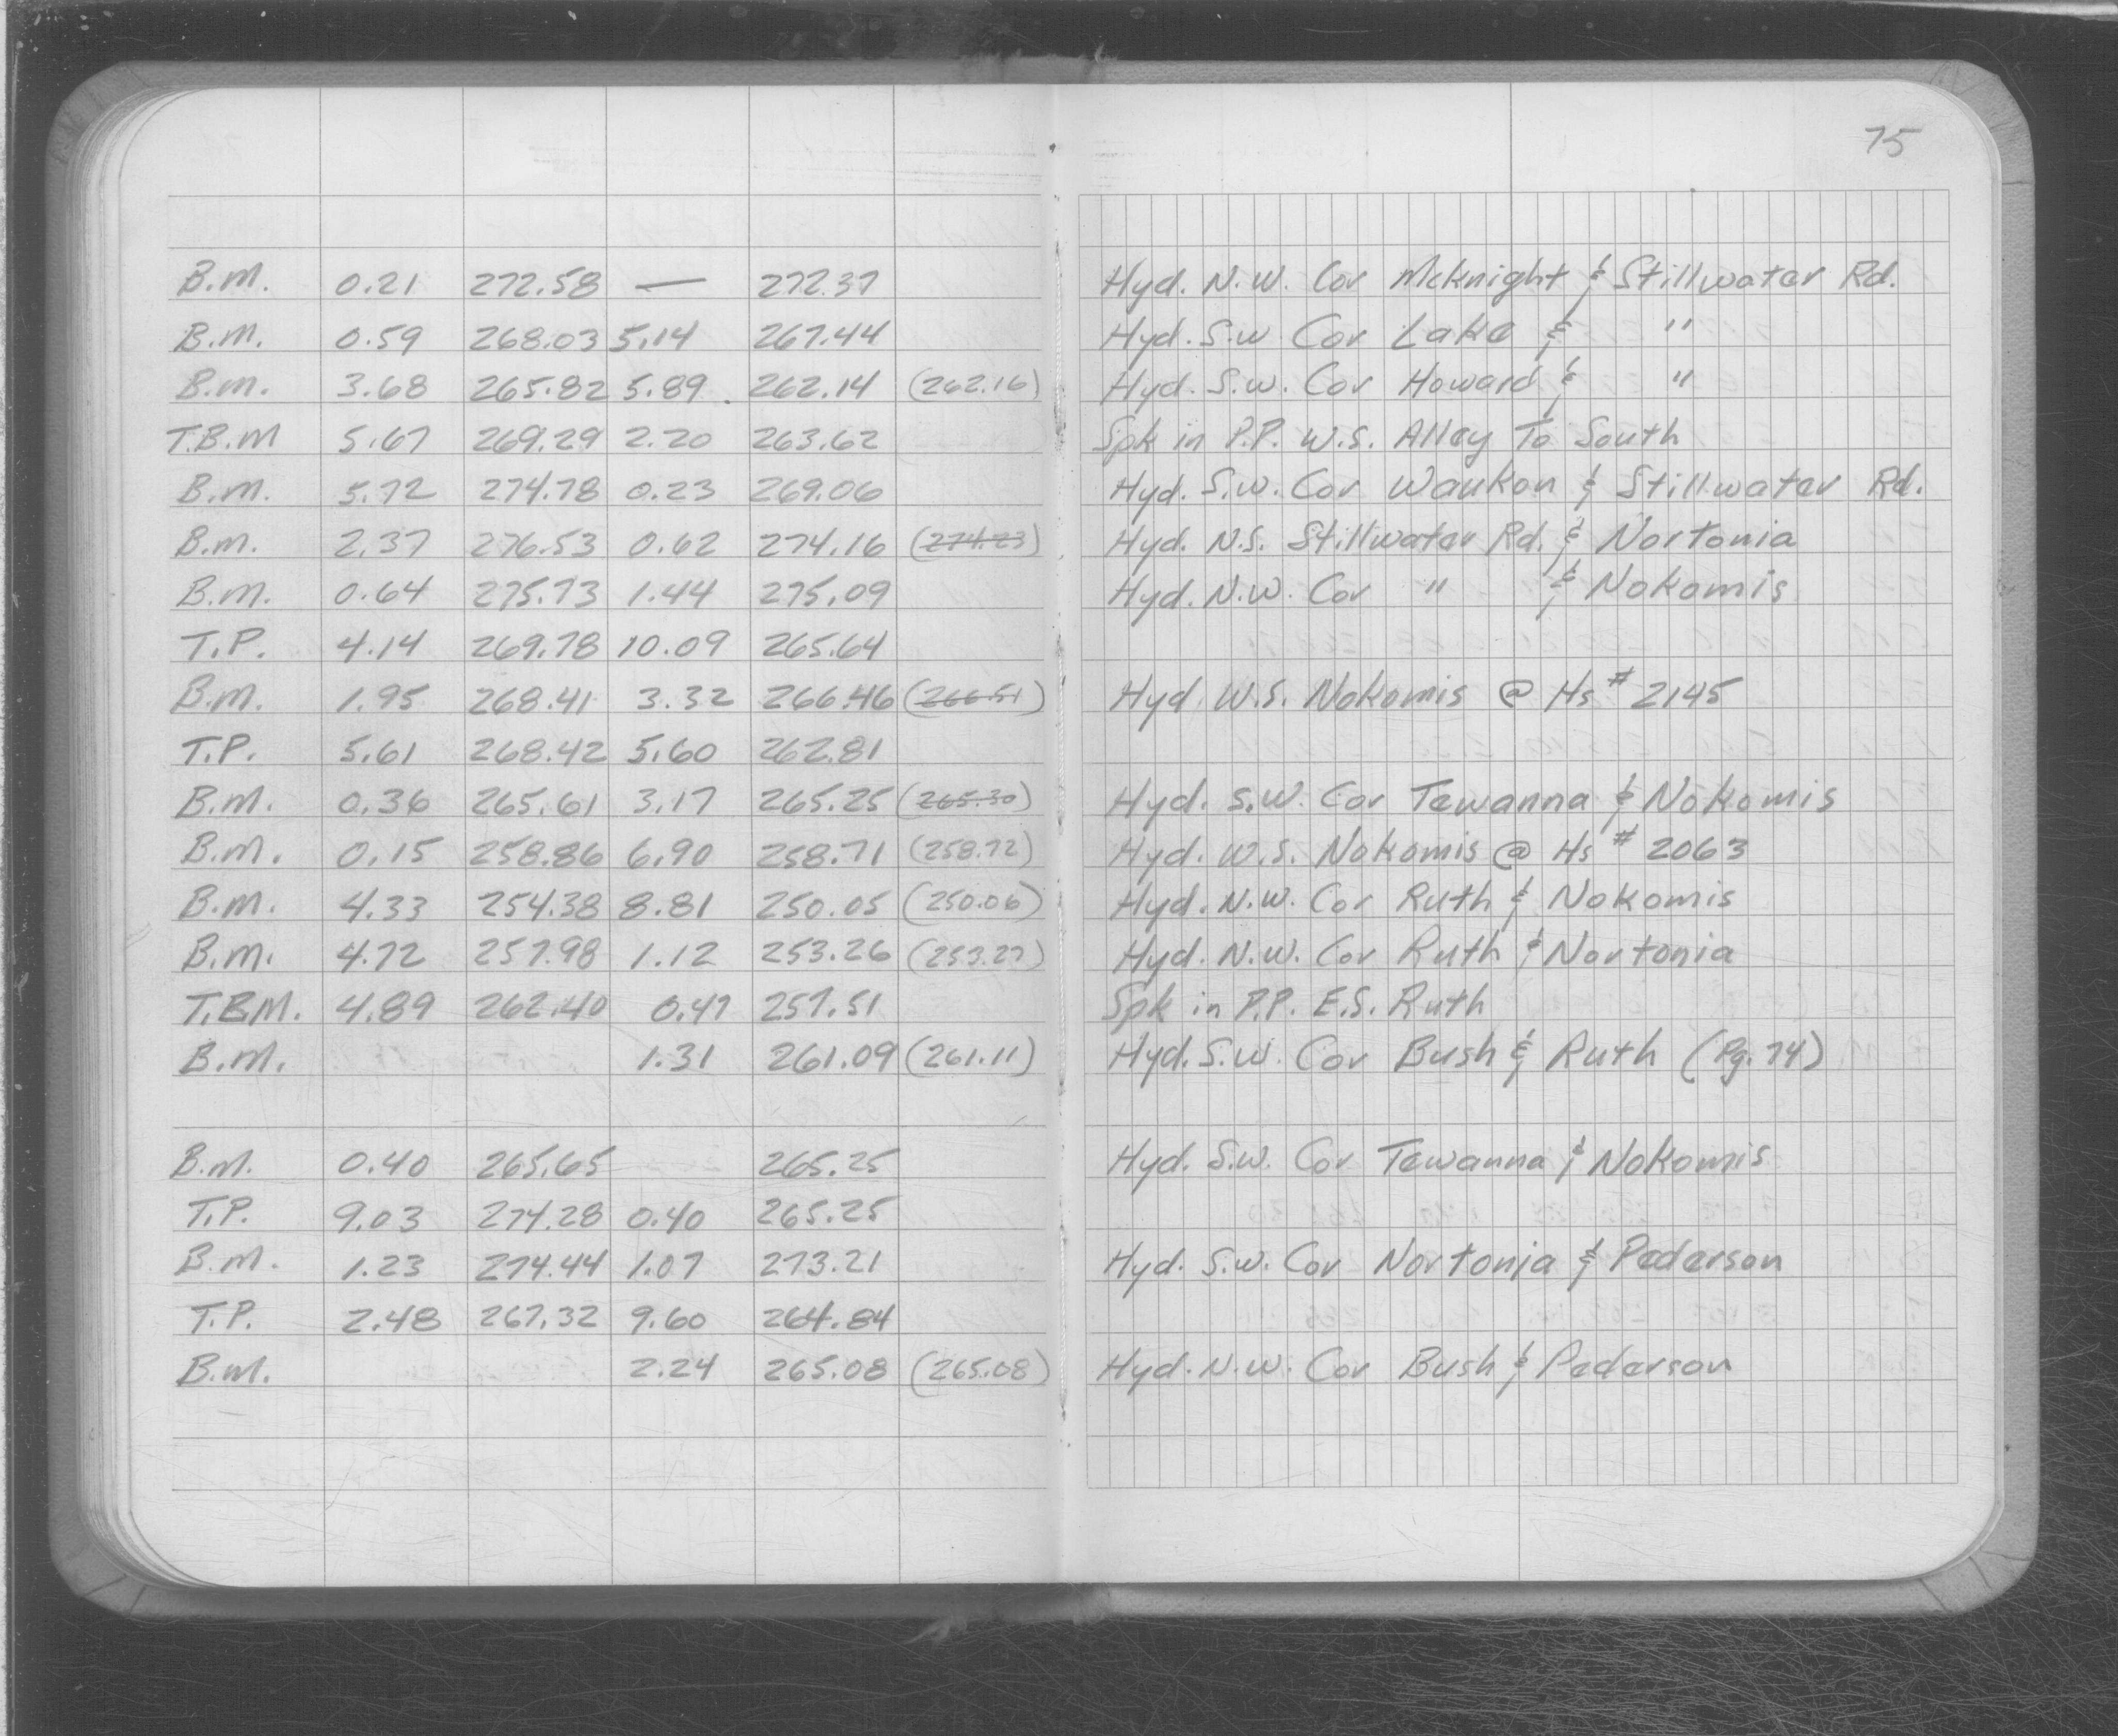 75
B.M. 0.21 272.58 — 272.37 Hyd. N.W. Cor McKnight & Stillwater Rd.
B.M. 0.59 268.03 5.14 267.44 Hyd. S.W Cor Lake & "
B.M. 3.68 265.82 5.89 262.14 (262.16) Hyd. S.W. Cor Howard & "
T.B.M 5.67 269.29 2.20 263.62 Spk in P.P. W.S. Alley To South
B.M. 5.72 274.78 0.23 269.06 Hyd. S.W. Cor Waukon & Stillwater Rd.
B.M. 2.37 276.53 0.62 274.16 (274.23) Hyd. N.S. Stillwater Rd. & Nortonia
B.M. 0.64 275.73 1.44 275.09 Hyd. N.W. Cor " & Nokomis
T.P. 4.14 269.78 10.09 265.64
B.M. 1.95 268.41 3.32 266.46 (266.51) Hyd. W.S. Nokomis @ Hs # 2145
T.P. 5.61 268.42 5.60 262.81
B.M. 0.36 265.61 3.17 265.25 (265.30) Hyd. S.W. Cor Tewanna & Nokomis
B.M. 0.15 258.86 6.90 258.71 (258.72) Hyd. W.S. Nokomis @ Hs # 2063
B.M. 4.33 254.38 8.81 250.05 (250.06) Hyd. N.W. Cor Ruth & Nokomis
B.M. 4.72 257.98 1.12 253.26 (253.27) Hyd. N.W. Cor Ruth & Nortonia
T.B.M. 4.89 262.40 0.47 257.51 Spk in P.P. E.S. Ruth
B.M. 1.31 261.09 (261.11) Hyd. S.W. Cor Bush & Ruth (Pg. 74)
B.M. 0.40 265.65 265.25 Hyd. S.W. Cor Tewanna & Nokomis
T.P. 9.03 274.28 0.40 265.25
B.M. 1.23 274.44 1.07 273.21 Hyd. S.W. Cor Nortonia & Pederson
T.P. 2.48 267.32 9.60 264.84
B.M. 2.24 265.08 (265.08) Hyd. N.W. Cor Bush & Pederson